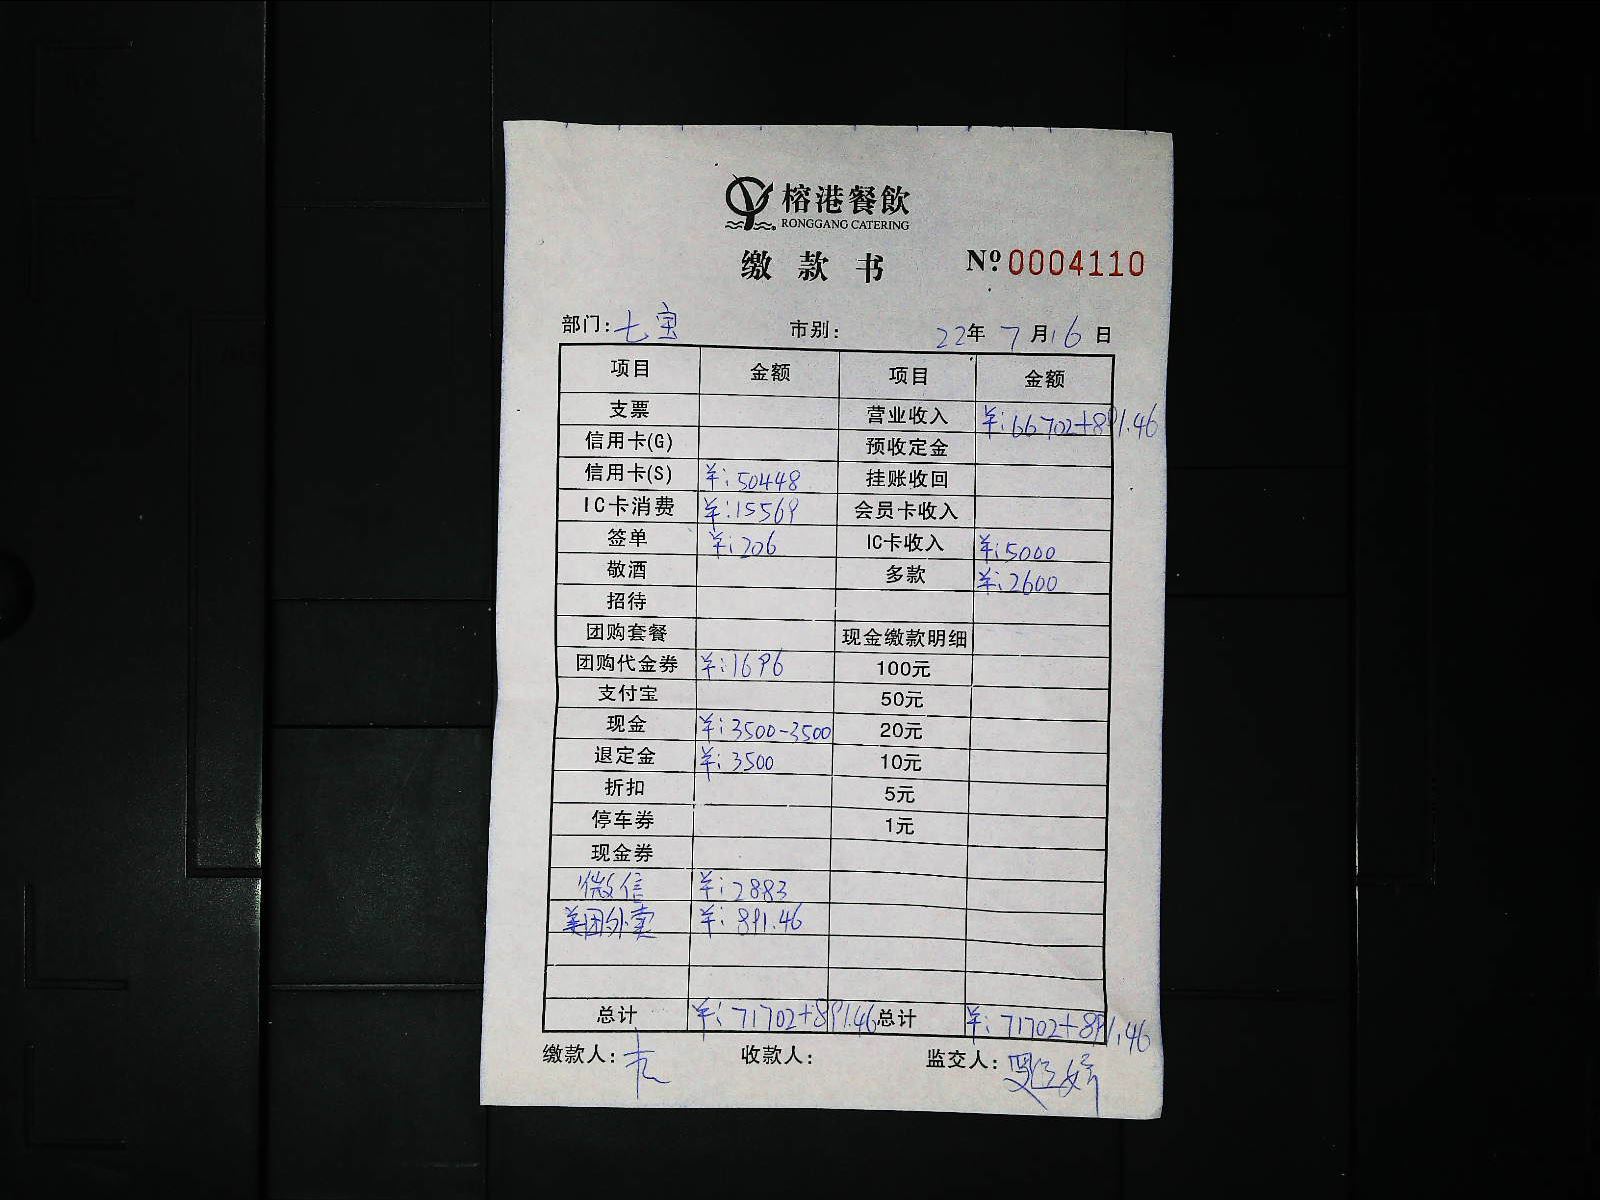 榕港餐飲
RONGGANG CATERING
缴款书 Nº 0004110
部门: 七宝 市别: 22年 7月16日
项目 金额 项目 金额
支票 营业收入 ¥:66702+891.46
信用卡(G) 预收定金
信用卡(S) ¥:50448 挂账收回
IC卡消费 ¥:15569 会员卡收入
签单 ¥:206 IC卡收入 ¥:5000
敬酒 多款 ¥:2600
招待
团购套餐 现金缴款明细
团购代金券 ¥:1696 100元
支付宝 50元
现金 ¥:3500-3500 20元
退定金 ¥:3500 10元
折扣 5元
停车券 1元
现金券
微信 ¥:2883
美团外卖 ¥:891.46
总计 ¥:71702+891.46 总计 ¥:71702+891.46
缴款人: 收款人: 监交人: